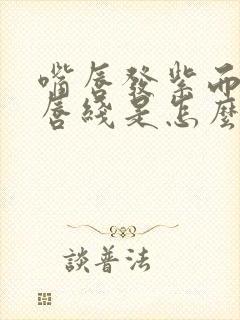 嘴唇發紫而
唇綫是怎麼
談普法